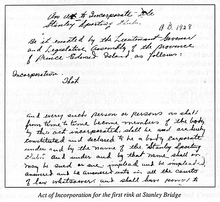 An act to Incorporate the
Stanley Sporting Club.
A.D. 1928
Be it enacted by the Lieutenant Governor
and Legislative Assembly of the province
of Prince Edward Island as follows:
Incorporation
That
And every such person or persons as shall
from time to time become members of the body
by this act incorporated, shall be and are hereby
constituted and declared to be a body corporate
under and by the name of the Stanley Sporting
Club and under and by that name shall or
may be sued or sue, implead and be impleaded
answer and be answered unto in all the courts
of law whatsoever and shall have power to
Act of Incorporation for the first rink at Stanley Bridge